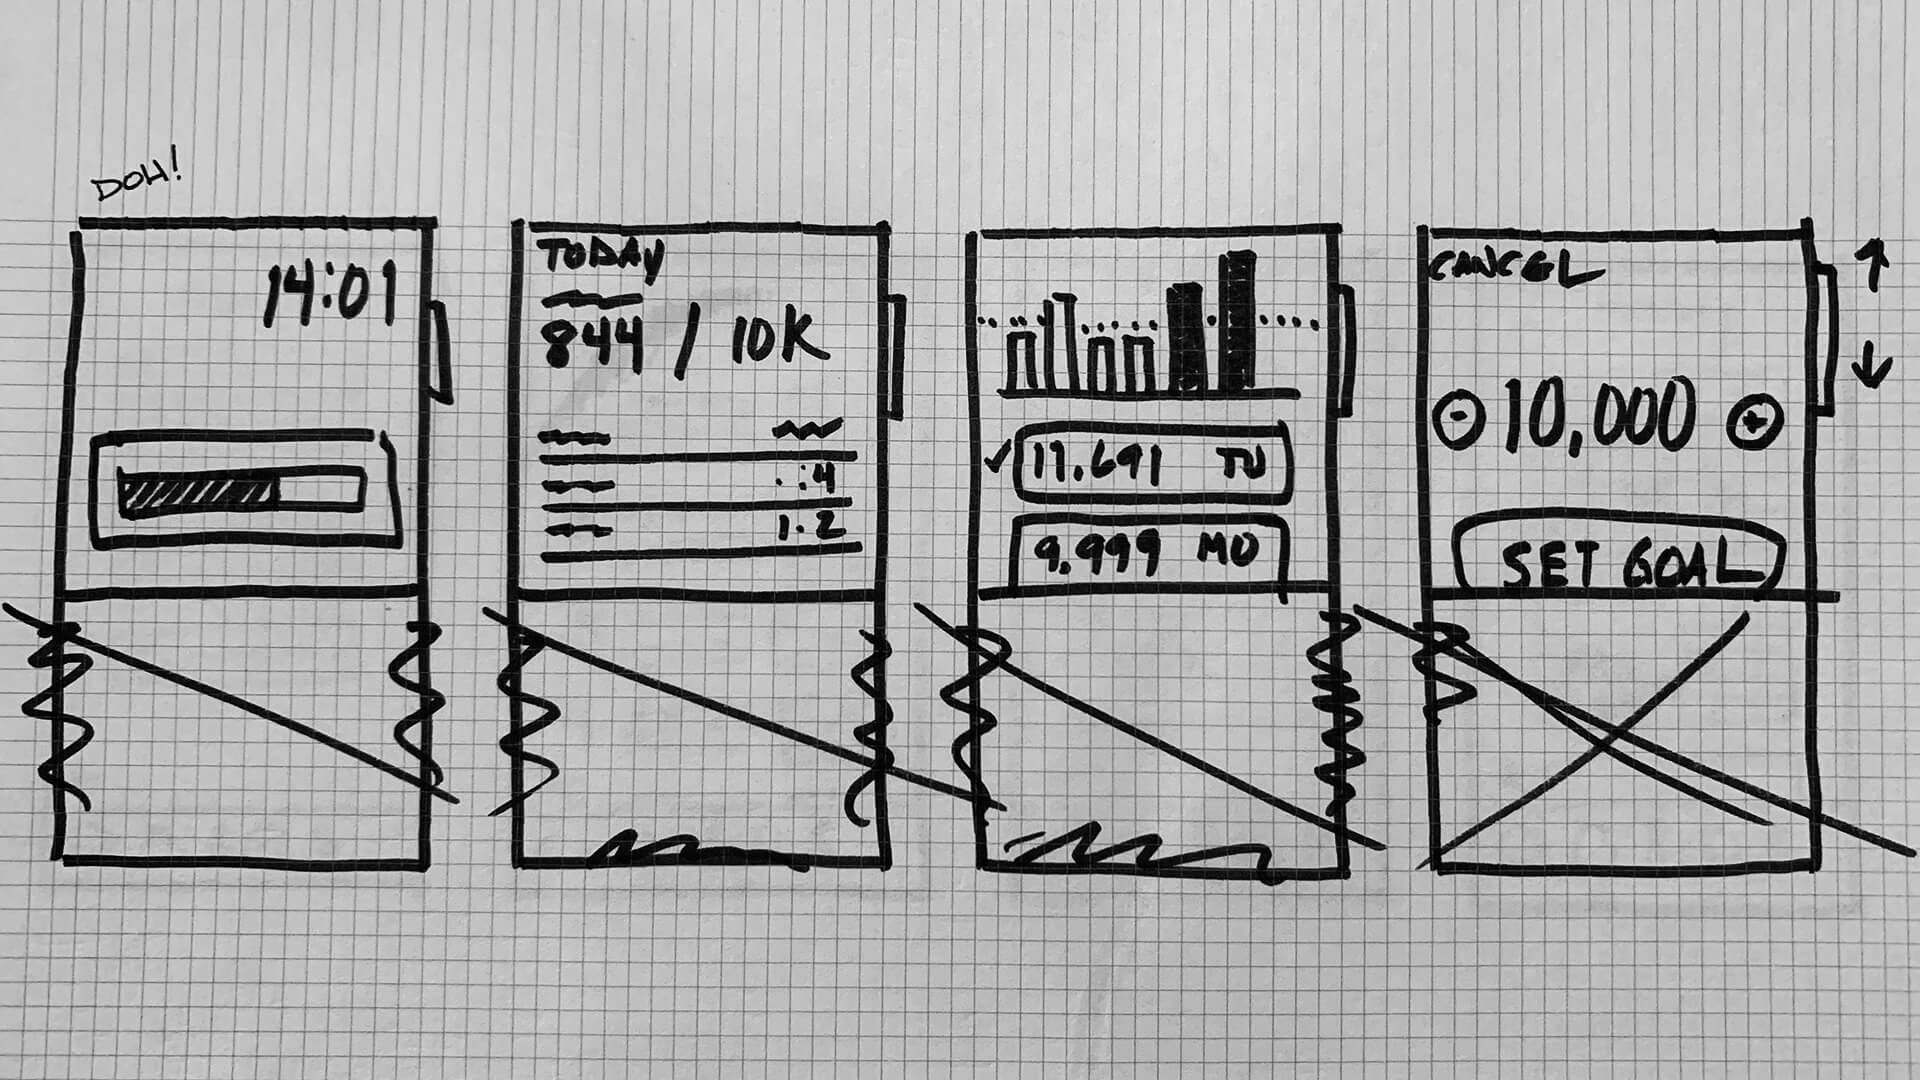 DOH!
14:01
TODAY
844 / 10K
.:4
1.2
11.691 TU
9.999 MO
CANCEL
- 10,000 +
SET GOAL